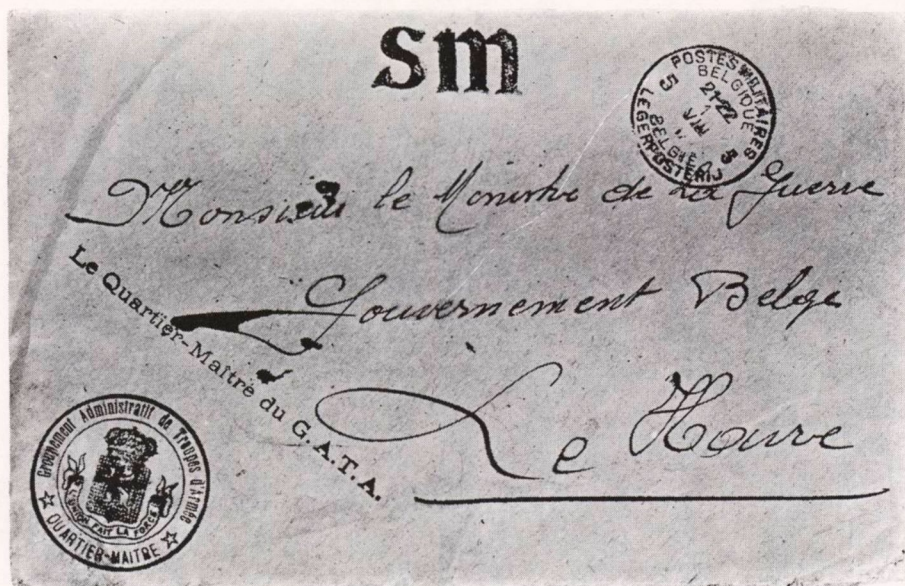 SM
POSTES MILITAIRES
BELGIQUE
21-22
1
VIII
5 5
BELGIË
LEGERPOSTERIJ
Monsieur le Ministre de la Guerre
Gouvernement Belge
Le Havre
Le Quartier-Maître du G.A.T.A.
Groupement Administratif de Troupes d'Armée
L'UNION FAIT LA FORCE
☆ QUARTIER-MAITRE ☆